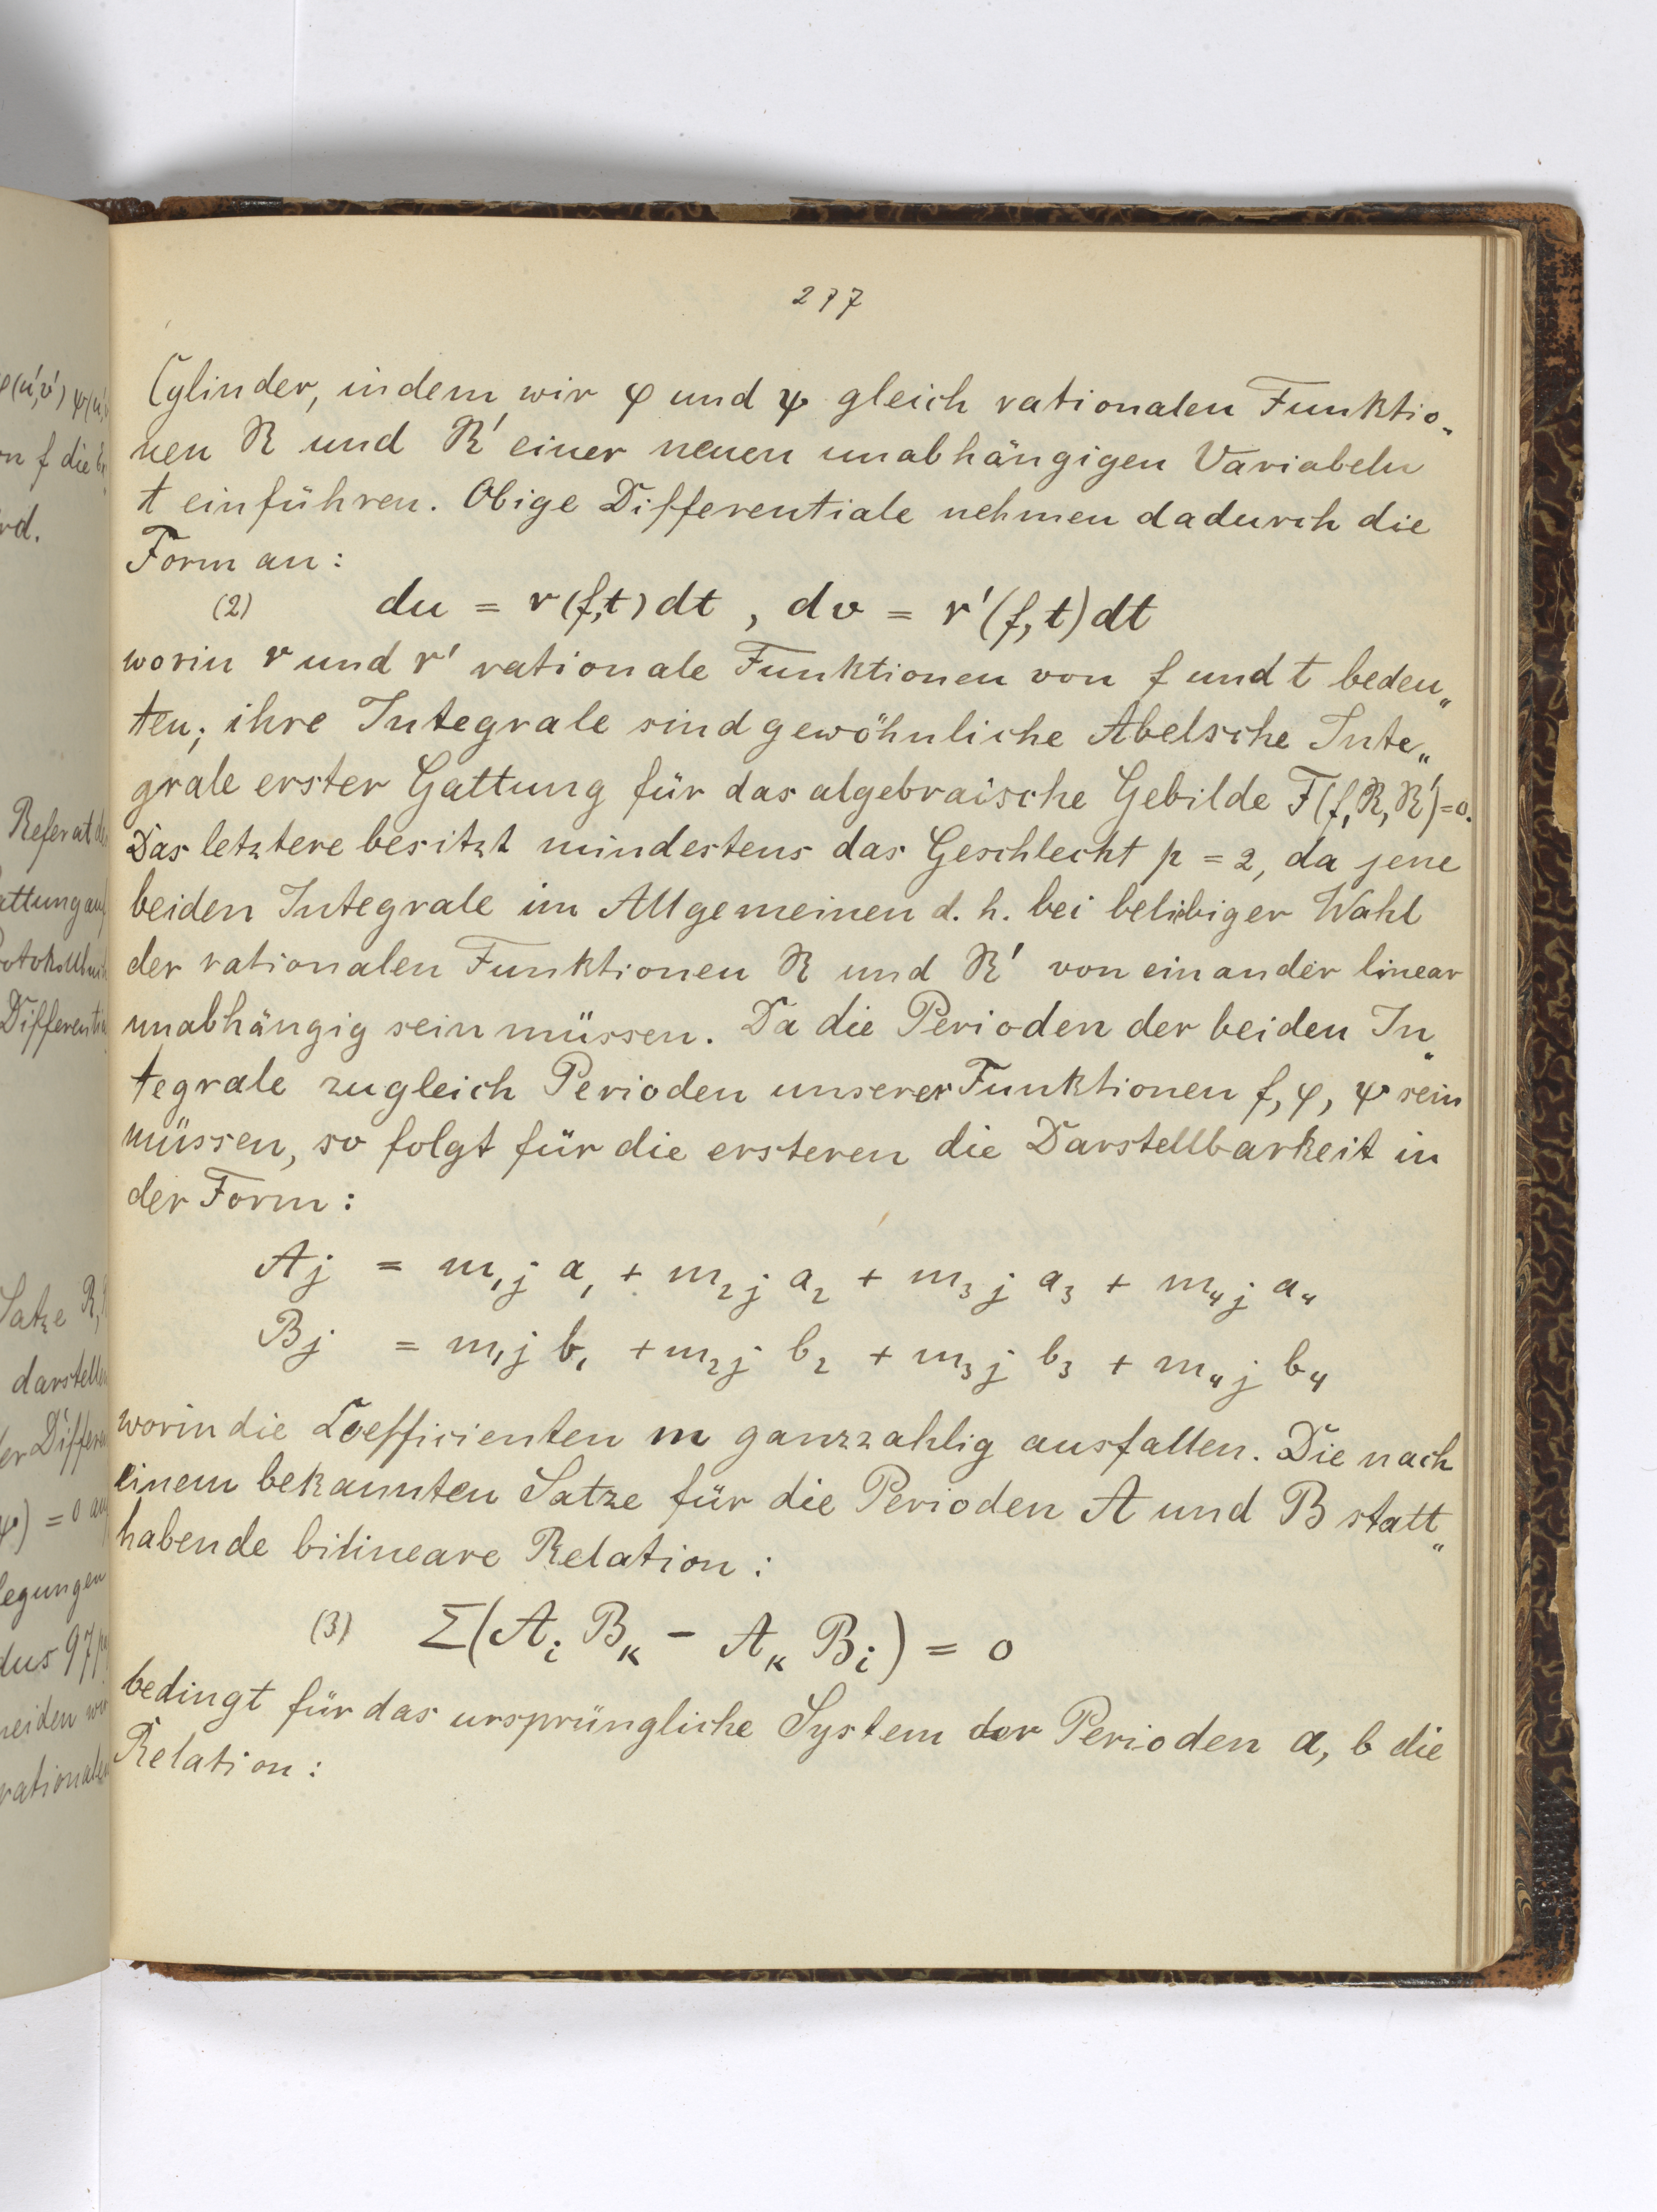 277
Cylinder, indem wir φ und ψ gleich rationalen Funktio-
nen R und R' einer neuen unabhängigen Variabeln
t einführen. Obige Differentiale nehmen dadurch die
Form an:
(2) du = r(f,t)dt , dv = r'(f,t)dt
worin r und r' rationale Funktionen von f und t bedeu„
ten; ihre Integrale sind gewöhnliche Abelsche Inte„
grale erster Gattung für das algebraische Gebilde F(f,R,R')=0.
Das letztere besitzt mindestens das Geschlecht p = 2, da jene
beiden Integrale im Allgemeinen d. h. bei belibiger Wahl
der rationalen Funktionen R und R' von einander linear
unabhängig sein müssen. Da die Perioden der beiden In„
tegrale zugleich Perioden unserer Funktionen f, φ, ψ sein
müssen, so folgt für die ersteren die Darstellbarkeit in
der Form:
Aj = m₁j a₁ + m₂j a₂ + m₃j a₃ + m₄j a₄
Bj = m₁j b₁ + m₂j b₂ + m₃j b₃ + m₄j b₄
worin die Coefficienten m ganzzahlig ausfallen. Die nach
einem bekannten Satze für die Perioden A und B statt„
habende bilineare Relation:
(3) Σ(Aᵢ Bₖ - Aₖ Bᵢ) = 0
bedingt für das ursprüngliche System der Perioden a, b die
Relation:
φ(u',v')
f die
rd.
Referat
Differentia
Satze R,
darstelle
er Differen
= 0
legungen
dus 97
rationale